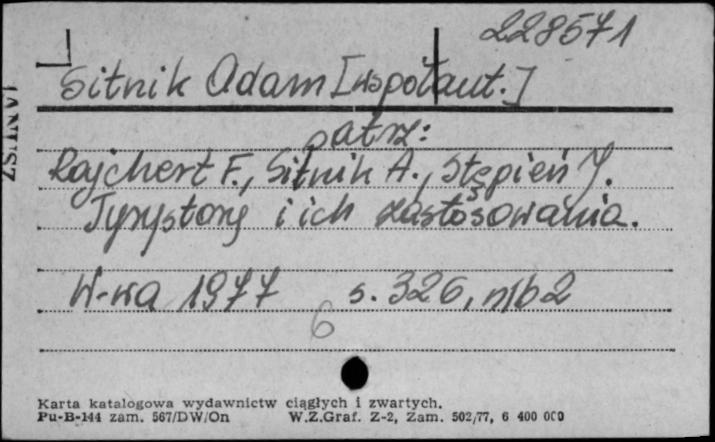 228571
Sitnik Adam [współaut.]
patrz:
Rajchert F., Sitnik A., Stępień J.
Tyrystory i ich zastosowania.
W-wa 1977 s. 326, nlb 2
6
Karta katalogowa wydawnictw ciągłych i zwartych.
Pu-B-144 zam. 567/DW/On W.Z.Graf. Z-2, Zam. 502/77, 6 400 000